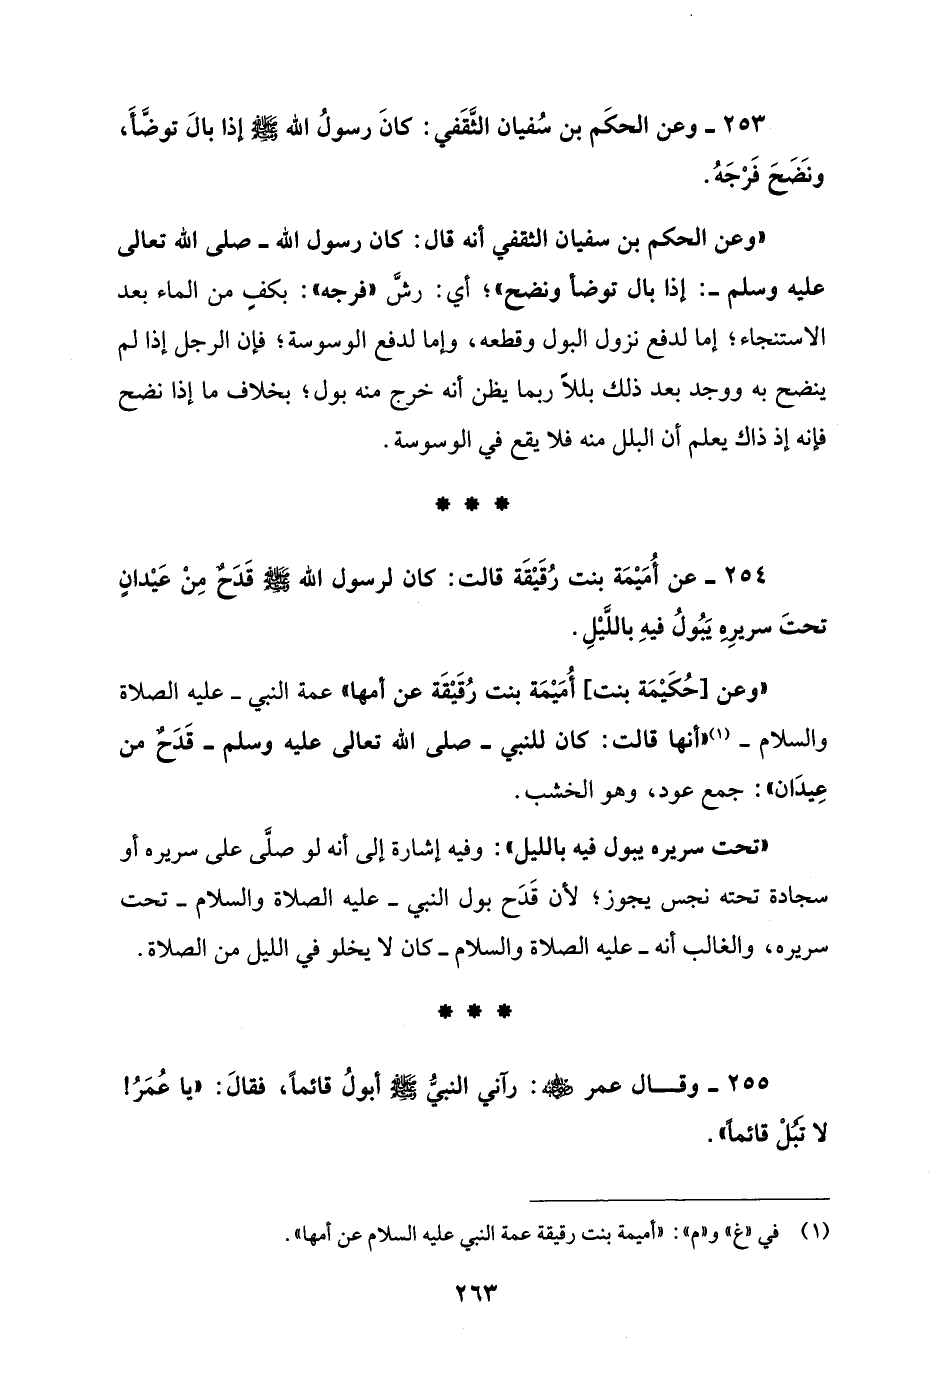 ٢٥٣ ـ وعن الحكَم بن سُفيان الثَّقَفي: كانَ رسولُ الله ﷺ إذا بالَ توضَّأَ،
ونَضَحَ فَرْجَهُ.
«وعن الحكم بن سفيان الثقفي أنه قال: كان رسول الله ـ صلى الله تعالى
عليه وسلم ـ: إذا بال توضأ ونضح»؛ أي: رشَّ «فرجه»: بكفٍ من الماء بعد
الاستنجاء؛ إما لدفع نزول البول وقطعه، وإما لدفع الوسوسة؛ فإن الرجل إذا لم
ينضح به ووجد بعد ذلك بللاً ربما يظن أنه خرج منه بول؛ بخلاف ما إذا نضح
فإنه إذ ذاك يعلم أن البلل منه فلا يقع في الوسوسة.
* * *
٢٥٤ ـ عن أُمَيْمَة بنت رُقَيْقَة قالت: كان لرسول الله ﷺ قَدَحٌ مِنْ عَيْدانٍ
تحتَ سريرِهِ يَبُولُ فيهِ باللَّيْلِ.
«وعن [حُكَيْمَة بنت] أُمَيْمَة بنت رُقَيْقَة عن أمها» عمة النبي ـ عليه الصلاة
والسلام ـ (١)«أنها قالت: كان للنبي ـ صلى الله تعالى عليه وسلم ـ قَدَحٌ من
عِيدَان»: جمع عود، وهو الخشب.
«تحت سريره يبول فيه بالليل»: وفيه إشارة إلى أنه لو صلَّى على سريره أو
سجادة تحته نجس يجوز؛ لأن قَدَح بول النبي ـ عليه الصلاة والسلام ـ تحت
سريره، والغالب أنه ـ عليه الصلاة والسلام ـ كان لا يخلو في الليل من الصلاة.
* * *
٢٥٥ ـ وقـــال عمر ﵁: رآني النبيُّ ﷺ أبولُ قائماً، فقالَ: «يا عُمَرُ!
لا تَبُلْ قائماً».
(١) في «غ» و«م»: «أميمة بنت رقيقة عمة النبي عليه السلام عن أمها».
٢٦٣